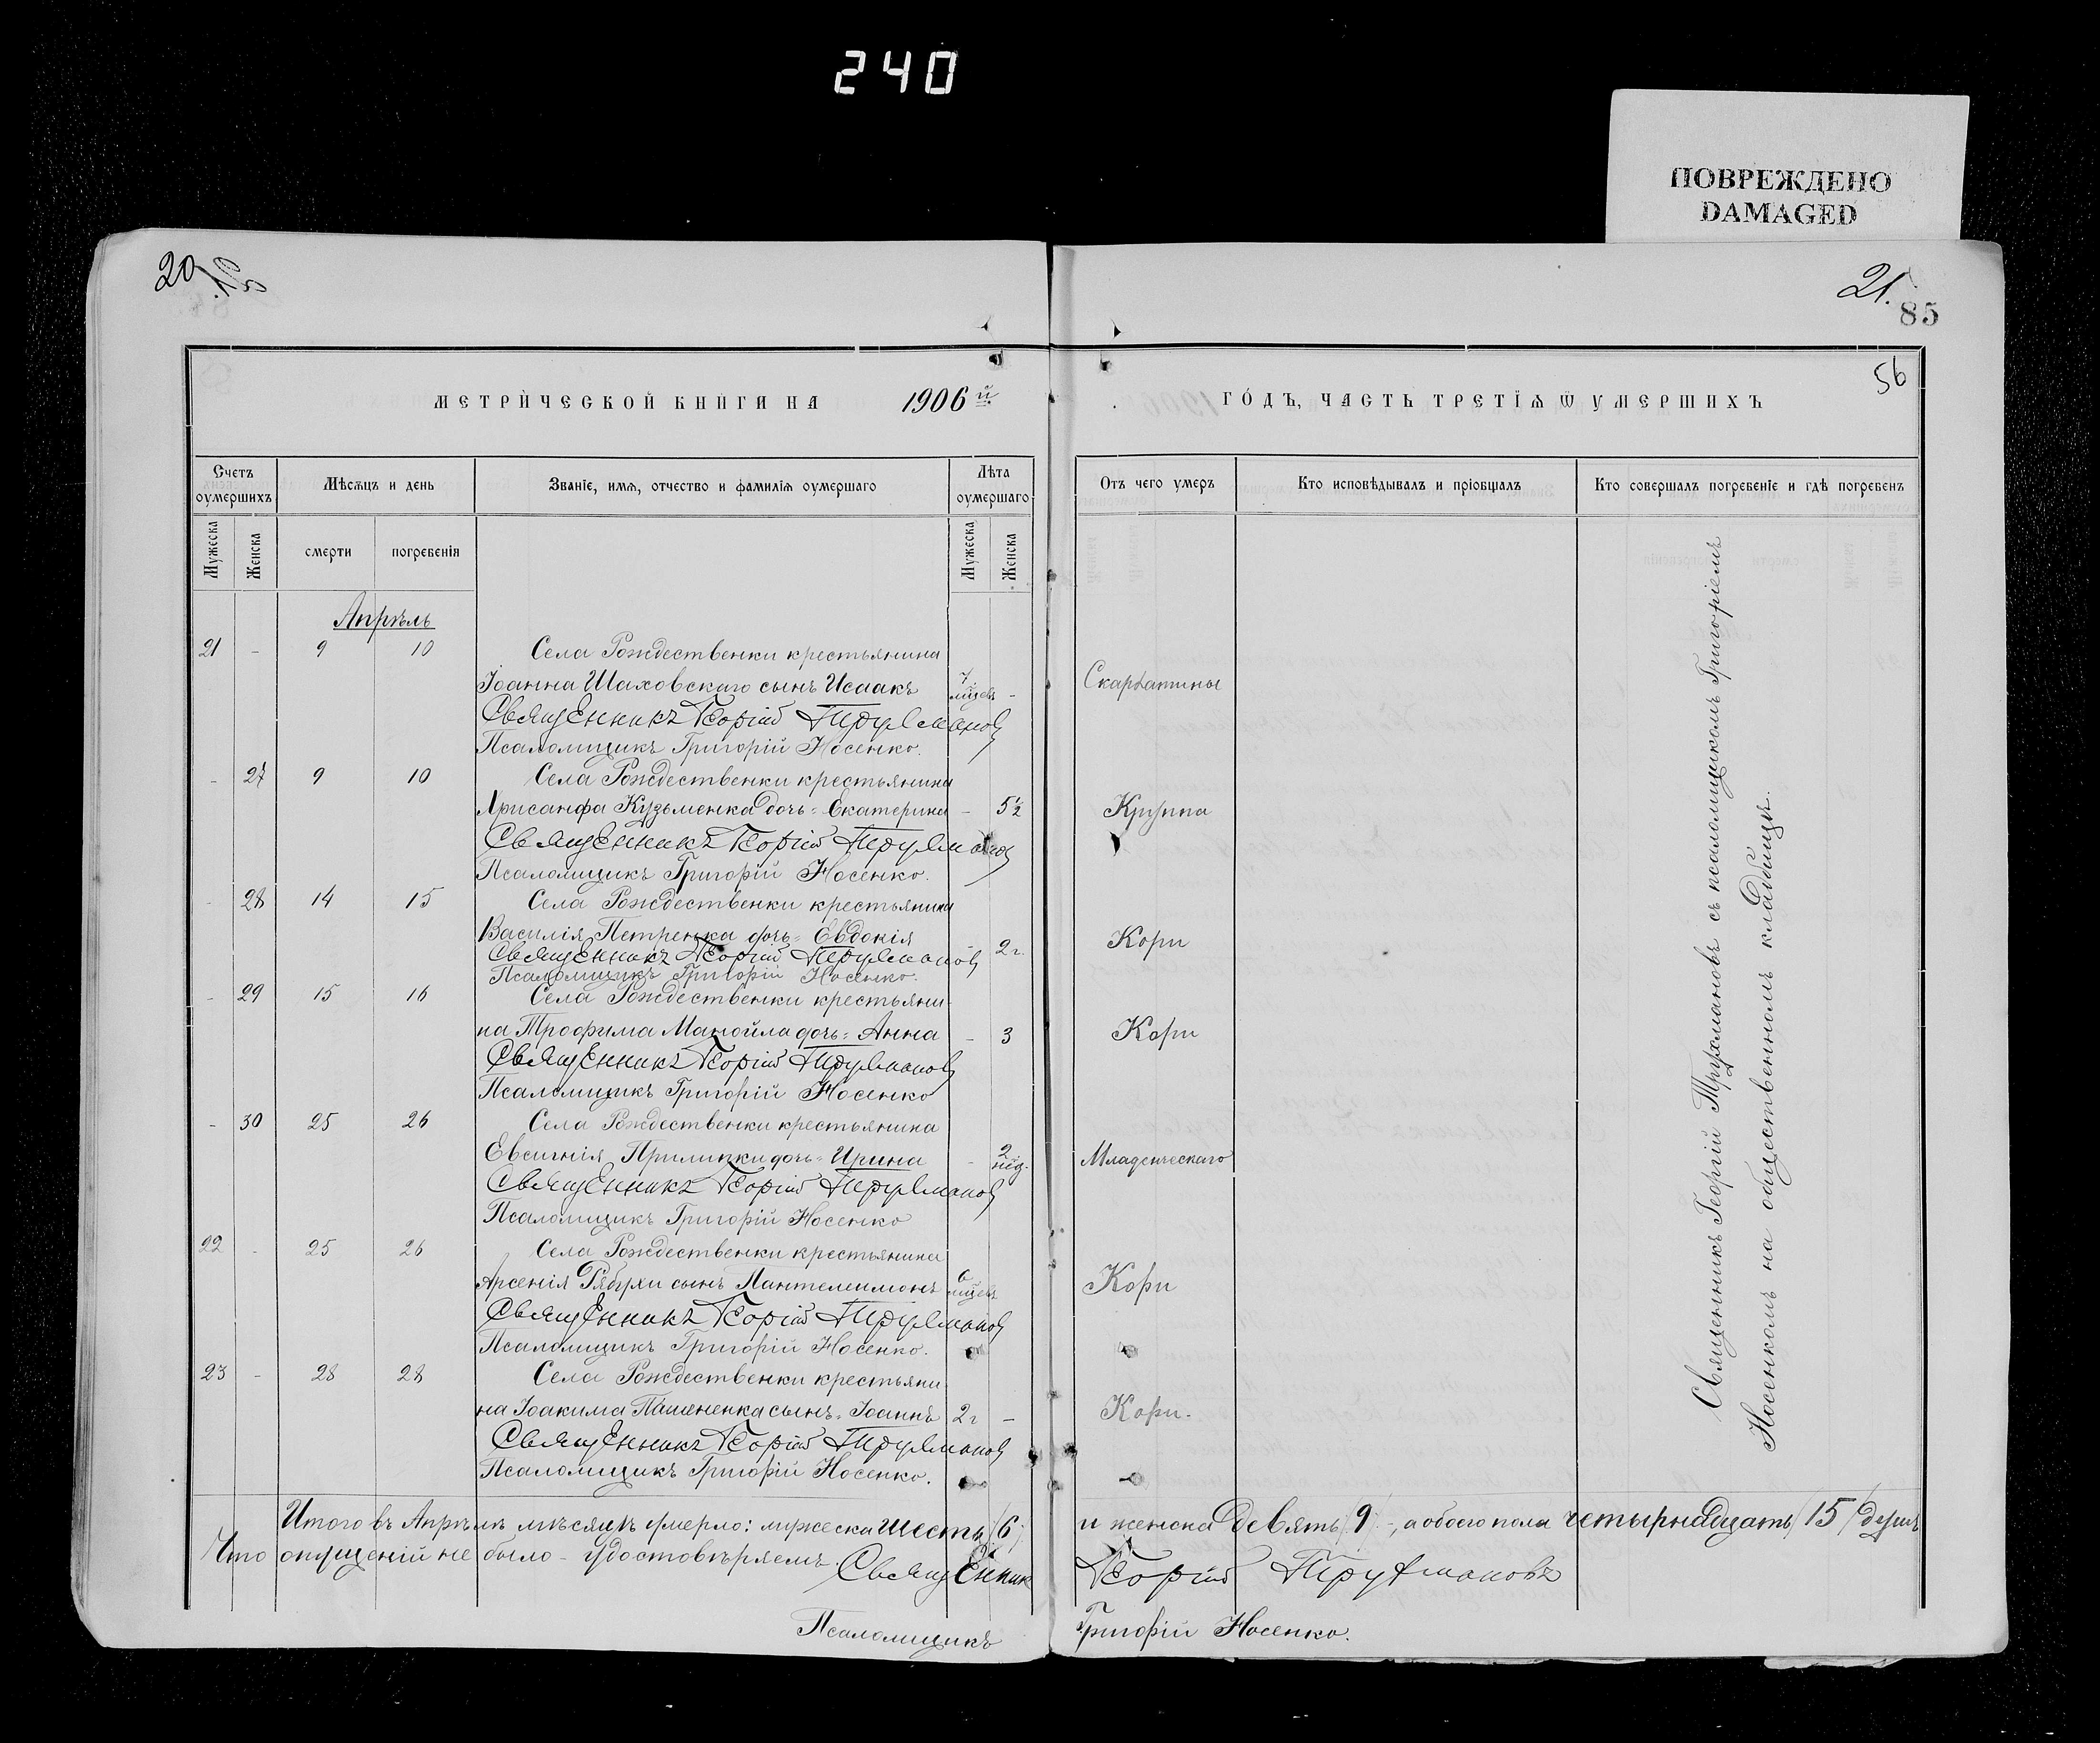 240
ПОВРЕЖДЕНО
DAMAGED
20
21.
85
56
МЕТРИЧЕСКОЙ КНИГИ НА 1906й
ГОДЪ, ЧАСТЬ ТРЕТІѦ Ѿ УМЕРШИХЪ
Счетъ оумершихъ
Мѣсѧцъ и день
Званіе, имѧ, отчество и фамиліѧ оумершаго
Лѣта оумершаго
Отъ чего умеръ
Кто исповѣдывалъ и пріобщалъ
Кто совершалъ погребеніе и гдѣ погребенъ
Мужеска
Женска
смерти
погребенія
Мужеска
Женска
Апрѣль
21 - 9 10 Села Рождественки крестьянина
Іоанна Шаховскаго сынъ Исаакъ 7 мцевъ - Скарлатины
Священникъ Георгій Трухмановъ
Псаломщикъ Григорій Носенко.
- 27 9 10 Села Рождественки крестьянина
Хрисанфа Кузьменка дочь=Екатерина - 5½ Круппа
Священникъ Георгій Трухмановъ
Псаломщикъ Григорій Носенко.
- 28 14 15 Села Рождественки крестьянина
Василія Петренка дочь=Евдокія - 2 г. Кори
Священникъ Георгій Трухмановъ
Псаломщикъ Григорій Носенко.
- 29 15 16 Села Рождественки крестьяни-
на Трофима Манойла дочь=Анна - 3 Кори
Священникъ Георгій Трухмановъ
Псаломщикъ Григорій Носенко
- 30 25 26 Села Рождественки крестьянина
Евсигнія Прилипки дочь=Ирина - 2 нед. Младенческаго
Священникъ Георгій Трухмановъ
Псаломщикъ Григорій Носенко
22 - 25 26 Села Рождественки крестьянина
Арсенія Рябухи сынъ Пантелеимонъ 6 мцевъ Кори
Священникъ Георгій Трухмановъ
Псаломщикъ Григорій Носенко.
23 - 28 28 Села Рождественки крестьяни-
на Іоакима сынъ=Іоаннъ 2 г - Кори.
Священникъ Георгій Трухмановъ
Псаломщикъ Григорій Носенко.
Священникъ Георгій Трухмановъ съ псаломщикомъ Григоріемъ
Носенкомъ на общественномъ кладбищѣ.
Итого въ Апрѣлѣ мѣсяцѣ умерло: мужеска шесть /6/ и женска девять /9/-, а обоего пола четырнадцать /15/ душъ
Что опущеній не было - удостовѣряемъ. Священник Георгій Трухмановъ
Псаломщикъ Григорій Носенко.